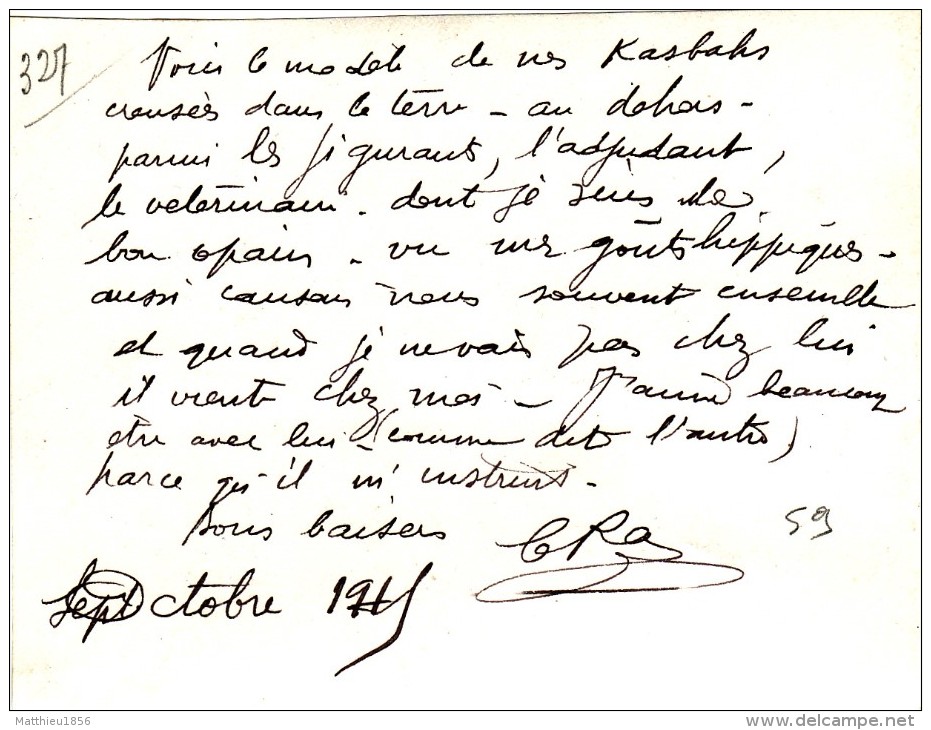 327
Voici le modèle de nos Kasbahs
creusées dans la terre - au dehors -
parmi les figurants, l'adjudant,
le vétérinaire - dont je suis le
bon copain - vu mes goûts hippiques -
aussi causons nous souvent ensemble
et quand je ne vais pas chez lui
il vient chez moi - J'aime beaucoup
être avec lui (comme dit l'autre)
parce qu'il m'instruit -
Bons baisers
59
Octobre 1915
Matthieu1856
www.delcampe.net